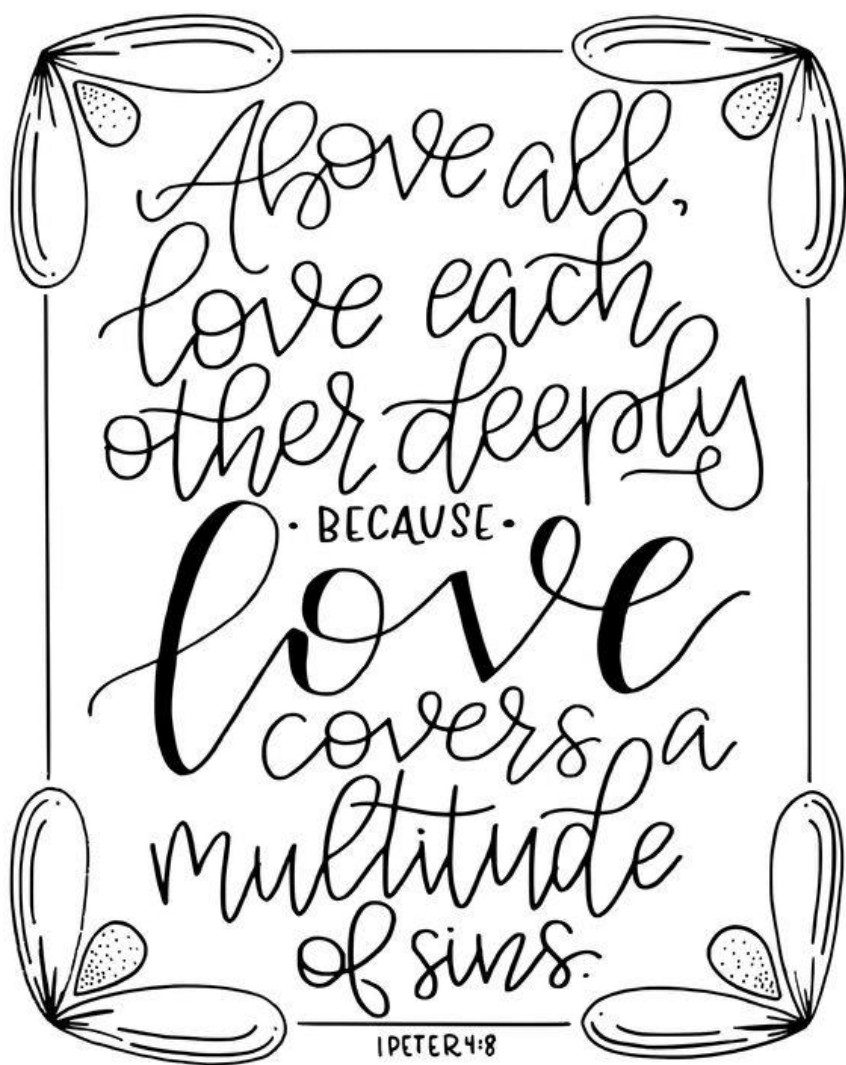 Above all,
love each
other deeply
• BECAUSE •
love
covers a
multitude
of sins.
1 PETER 4:8